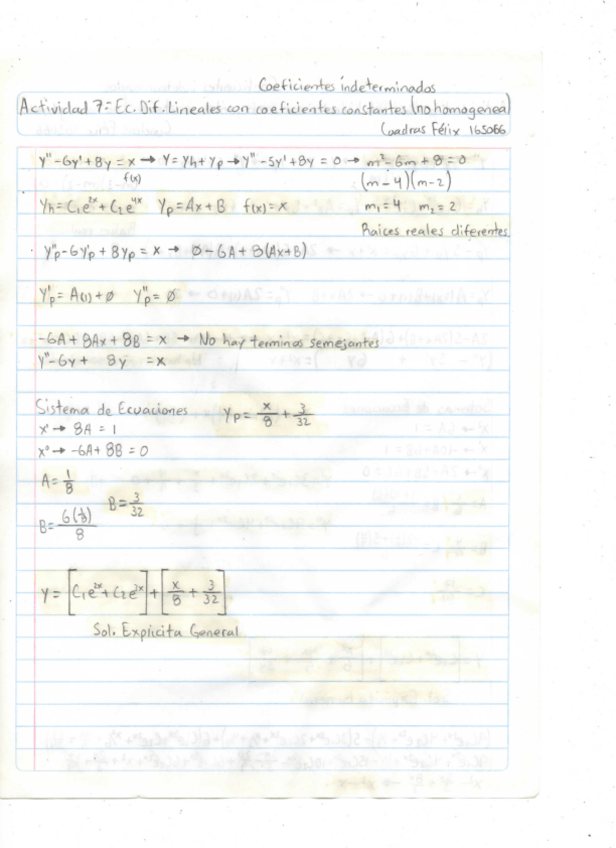 Coeficientes indeterminados
Actividad 7: Ec. Dif. Lineales con coeficientes constantes (no homogenea)
Cuadras Félix 165066
y''-6y'+8y = x → y = yh + yp → y''-5y'+8y = 0 → m²-6m+8=0
f(x)
(m-4)(m-2)
yh = C₁e²ˣ + C₂e⁴ˣ yp = Ax+B f(x)=x m₁=4 m₂=2
Raices reales diferentes
y''p-6y'p+8yp = x → 0-6A+8(Ax+B)
y'p = A(1)+0 y''p = 0
-6A+8Ax+8B = x → No hay terminos semejantes
y''-6y+ 8y =x
Sistema de Ecuaciones yp = x/8 + 3/32
x' → 8A = 1
x⁰ → -6A+8B = 0
A = 1/8
B = 3/32
B = 6(1/8)/8
y = [C₁e²ˣ+C₂e³ˣ]+[x/8 + 3/32]
Sol. Explicita General